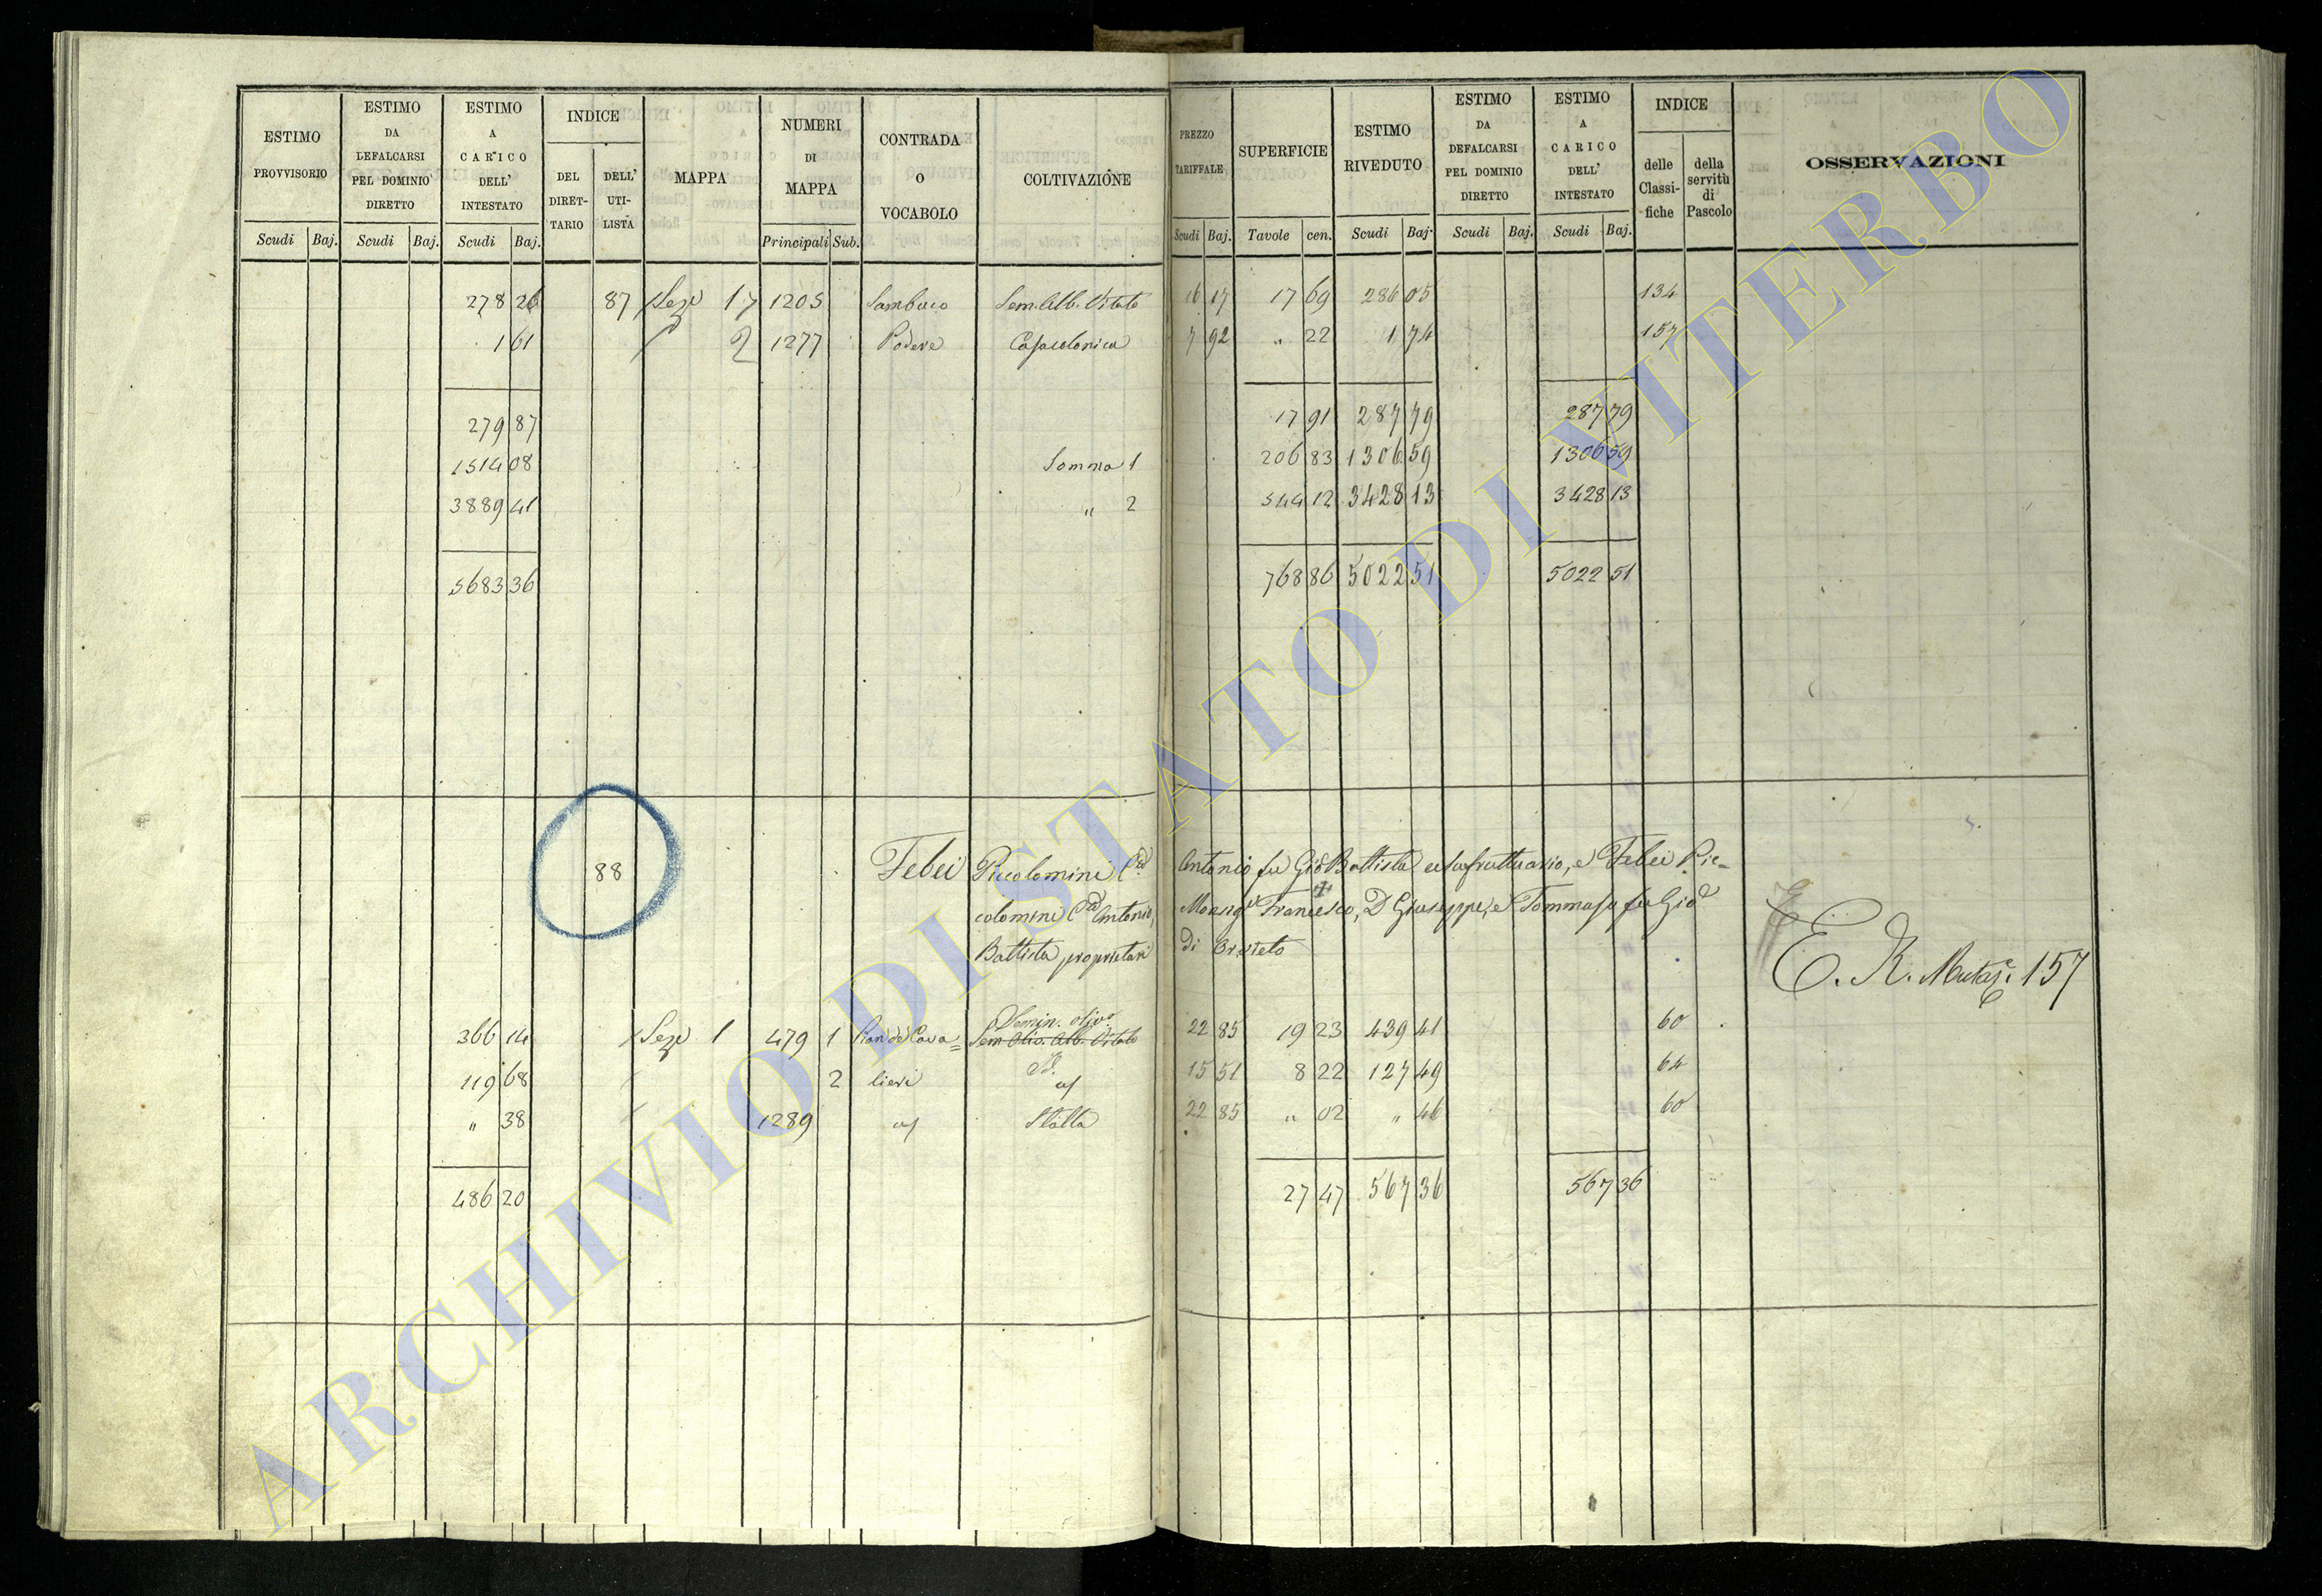 ESTIMO PROVVISORIO
ESTIMO DA DEFALCARSI PEL DOMINIO DIRETTO
ESTIMO A CARICO DELL' INTESTATO
INDICE
DEL DIRET-TARIO
DELL' UTI-LISTA
MAPPA
NUMERI DI MAPPA
CONTRADA O VOCABOLO
COLTIVAZIONE
PREZZO TARIFFALE
SUPERFICIE
ESTIMO RIVEDUTO
ESTIMO DA DEFALCARSI PEL DOMINIO DIRETTO
ESTIMO A CARICO DELL' INTESTATO
INDICE
delle Classi-fiche
della servitù di Pascolo
OSSERVAZIONI
Scudi Baj. Scudi Baj. Scudi Baj. Principali Sub. Scudi Baj. Tavole cen. Scudi Baj. Scudi Baj. Scudi Baj.
278 26 87 Seze 17 1205 Sambuco Sem. Alb. Vitato 16 17 17 69 286 05 134
1 61 2 1277 Podere Casacolonica 7 92 " 22 1 74 157
279 87 17 91 287 79 287 79
1514 08 Somma 1 206 83 1306 59 1306 59
3889 41 " 2 544 12 3428 13 3428 13
5683 36 768 86 5022 51 5022 51
88 Febei Piccolomini Antonio fu Gio Battista usufruttuario, e Febei Pic-
colomini Antonio, Monsigr Francesco, D Giuseppe, e Tommaso fu Gio
Battista proprietari di Orvieto
E. R. Mutaz. 157
Semin. olivo
366 14 Seze 1 479 1 Pian de Cava= Sem Olio. Alb. Vitato 22 85 19 23 439 41 60
119 68 2 lieri 15 51 8 22 127 49 64
" 38 1289 Stalla 22 85 " 02 " 46 60
486 20 27 47 567 36 567 36
ARCHIVIO DI STATO DI VITERBO